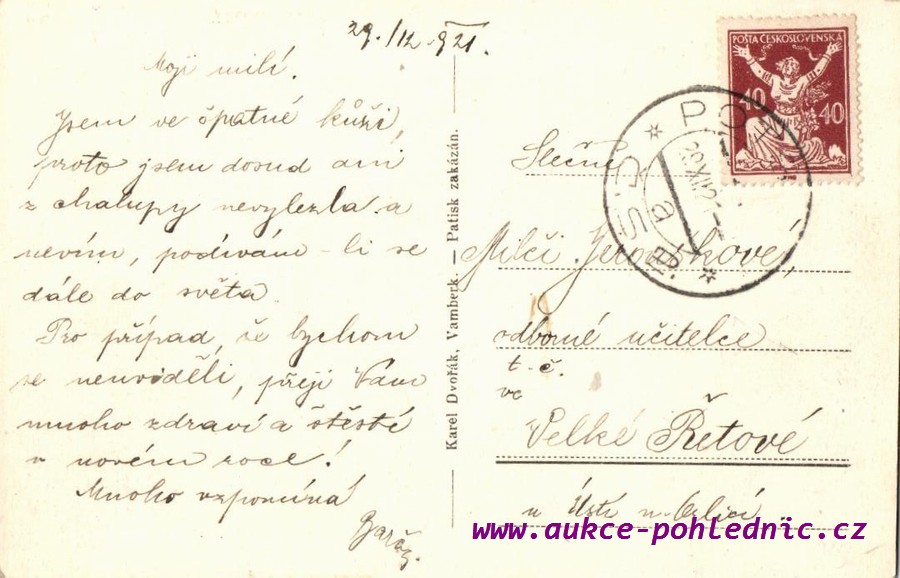 29./12. 921.
Moji milí.
Jsem ve špatné kůži,
proto jsem dosud ani
z chalupy nevylezla a
nevím, podívám-li se
dále do světa.
Pro případ, že bychom
se neuviděli, přeji Vám
mnoho zdraví a štěstí
v novém roce!
Mnoho vzpomíná
Karel Dvořák, Vamberk. — Patisk zakázán.
POŠTA ČESKOSLOVENSKÁ
40 40
Slečna
Milči
odborné učitelce
t. č.
ve
Velké Řetové
u Ústí n. Orlicí
www.aukce-pohlednic.cz